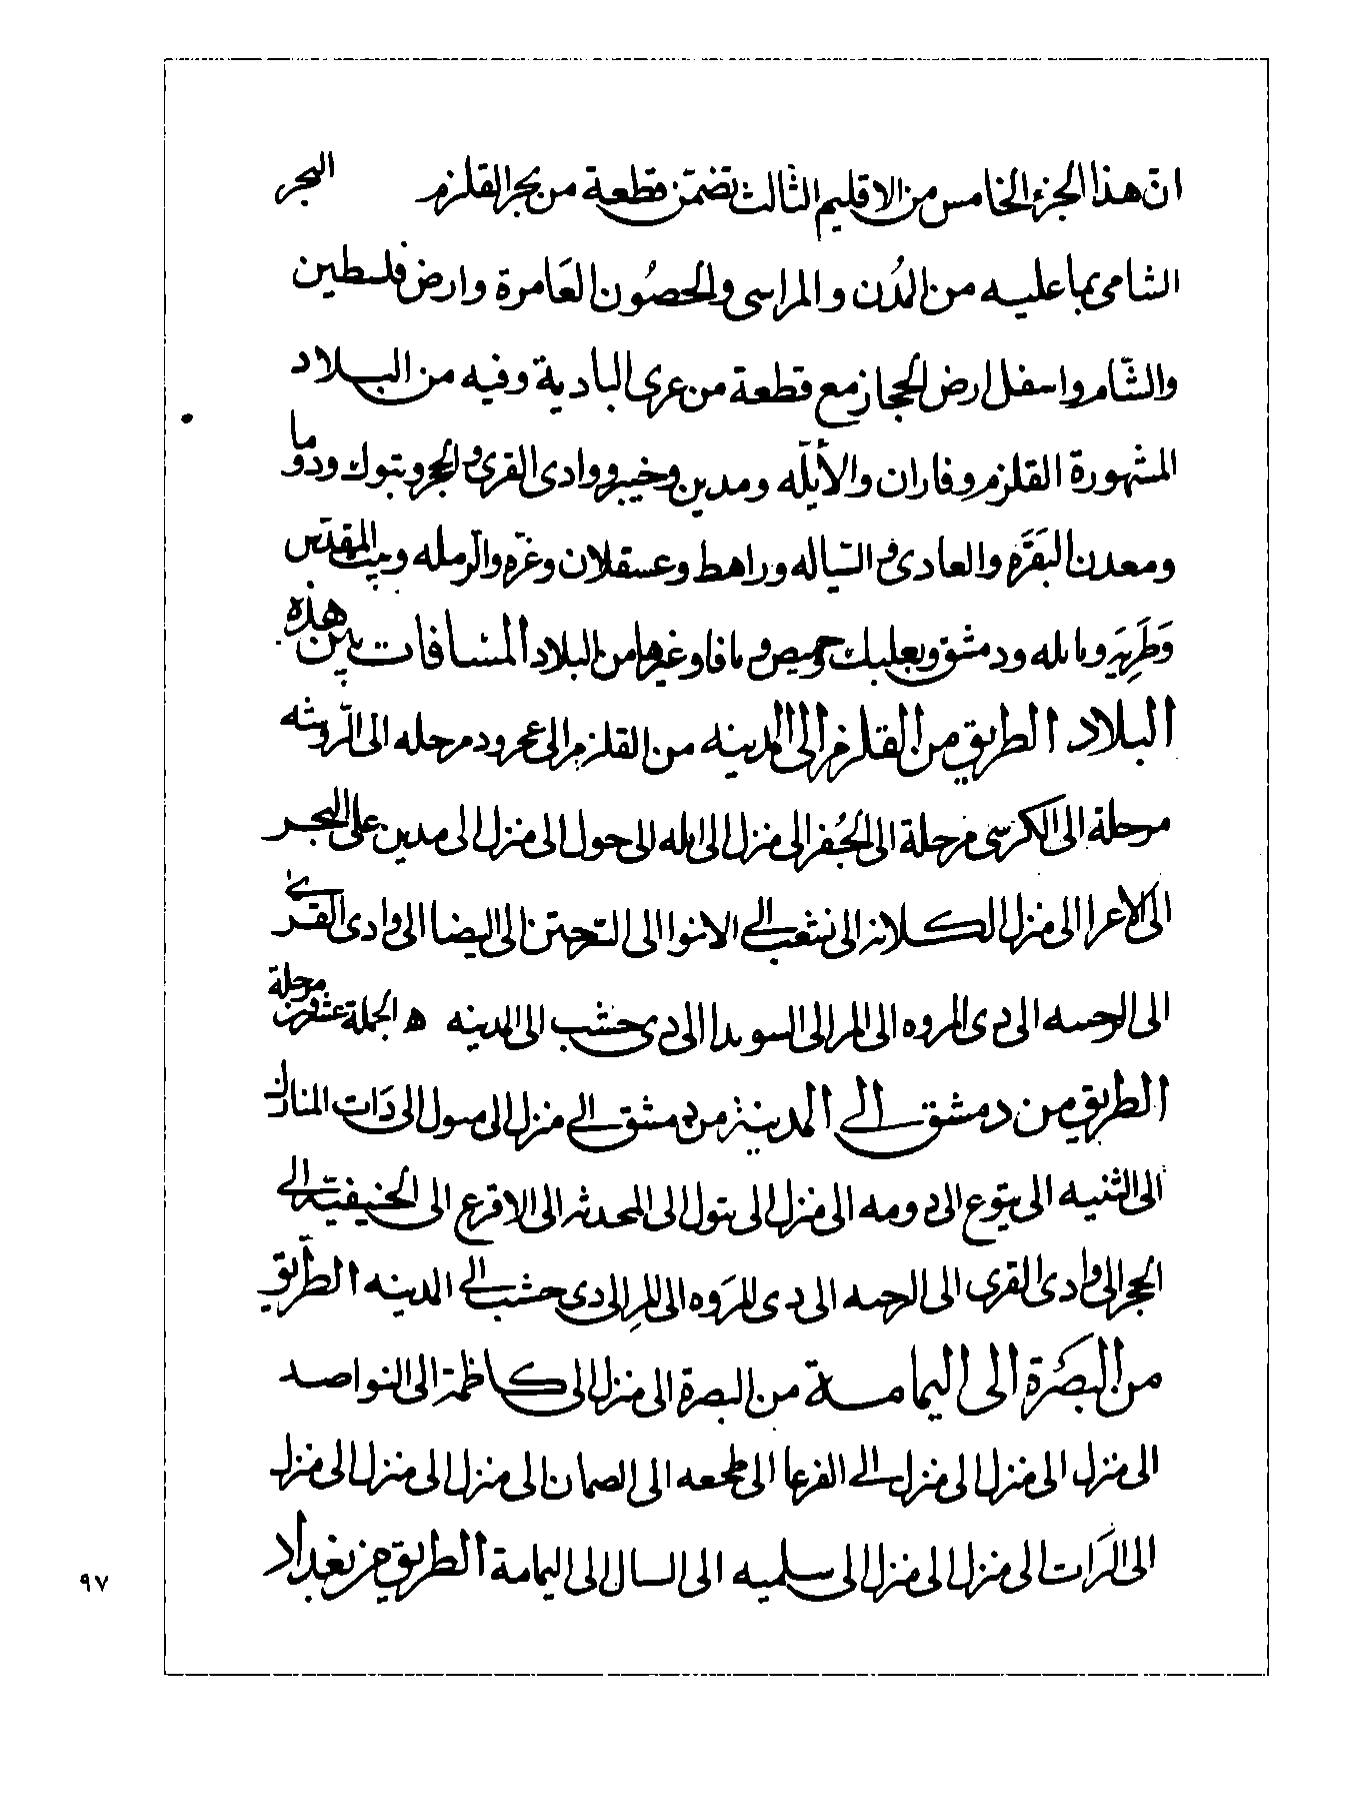 انّ هذا الجزء الخامس من الاقليم الثالث تضمّن قطعة من بحر القلزم البحر
الشامى بما عليه من المُدُن والمراسى والحصُون العَامرة وارض فلسطين
والشّام واسفل ارض الحجاز مع قطعة من عرى البادية وفيه من البلاد
المشهورة القلزم وفاران والأيلّه ومدين وخيبر ووادى القرى والحجر وتبوك ودوما
ومعدن البَقَرَه والعادى و السّياله وراهط وعسقلان وغزّه والرّمله وبيت المقدّس
وَطَبريَه وبابله ودمشق وبعلبك وحميص و بافا وغيرها من البلاد المسافات بين هذه
البلاد الطريق من القلزم الى المدينه من القلزم الى عجرود مرحله الى الرّويثه
مرحلة الى الكرسى مرحلة الى الجُفر الى منزل الى ايله الى حول الى منزل الى مدين على البحر
الى الاعرا الى منزل الى الكلانه الى نثعب الى الانوا الى التحتن الى البيضا الى وادى القرى
الى الرحبه الى ذى المروه الى المر الى السويدا الى ذى خشب الى المدينه ه الجملة عشرون مرحلة
الطريق من دمشق الى المدينة من دمشق الى منزل الى مىول الى ذات المنازل
الى الثنيه الى يتوع الى دومه الى منزل الى بتول الى المحدثه الى الاقرع الى الحنيفيّة الى
الحجر الى وادى القرى الى الرحبه الى ذى المَروه الى المر الى ذى خشب الى المدينه الطّريق
من البصَرَة الى اليمامة من البصرة الى منزل الى كاظمة الى النواصد
الى منزل الى منزل الى منزل الى القرعا الى طخعه الى الصمان الى منزل الى منزل الى منزل
الى الرَات الى منزل الى منزل الى سلميه الى السال الى اليمامة الطريق من بغداد
٩٧